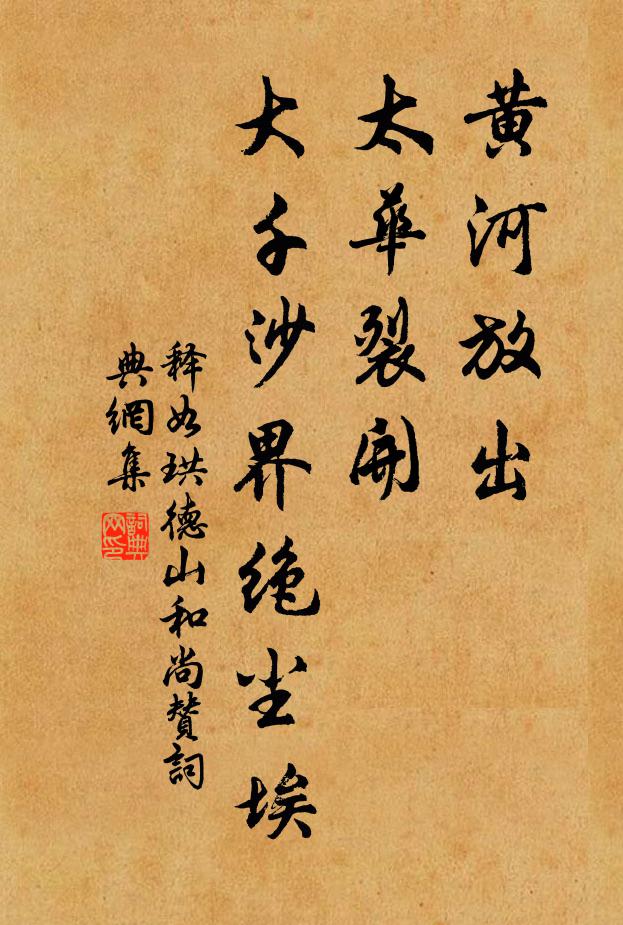 黄河放出
太華裂開
大千沙界絶尘埃
释如珙德山和尚贊詞
典網集
詞典
网印